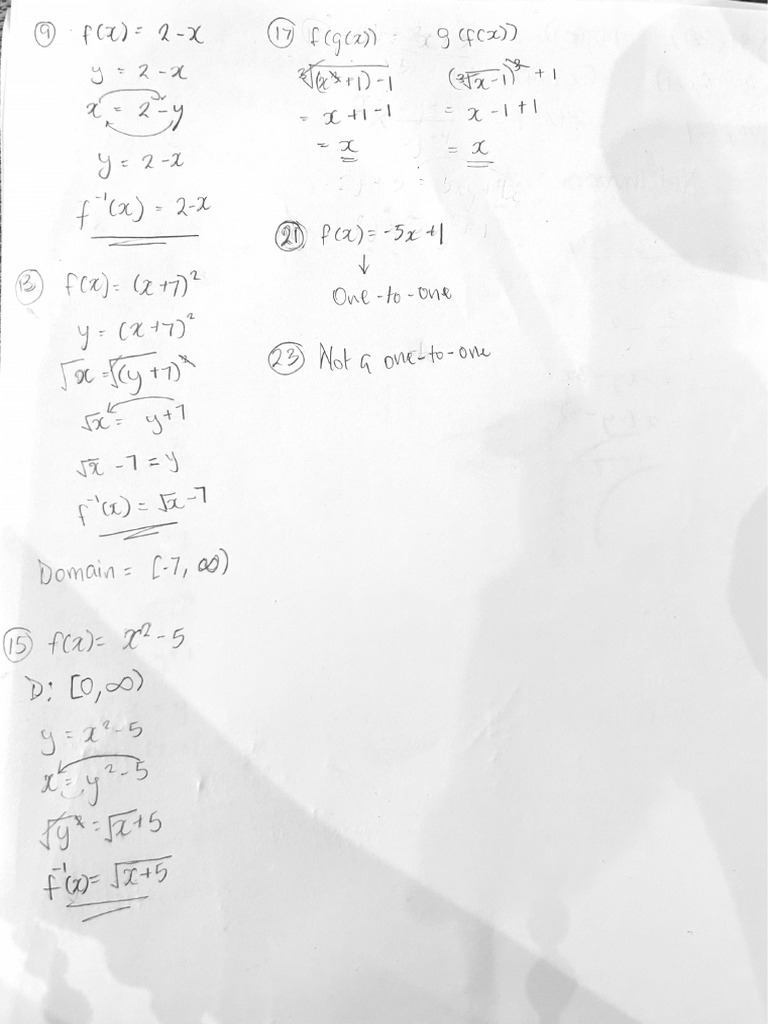 ⑨ f(x) = 2-x
y = 2-x
x = 2-y
y = 2-x
f⁻¹(x) = 2-x
⑬ f(x) = (x+7)²
y = (x+7)²
√x = √(y+7)²
√x = y+7
√x -7 = y
f⁻¹(x) = √x-7
Domain = [-7, ∞)
⑮ f(x) = x²-5
D: [0, ∞)
y = x²-5
x = y²-5
√y² = √x+5
f⁻¹(x) = √x+5
⑰ f(g(x)) = g(f(x))
∛(x³+1)-1 (∛x-1)³ +1
= x+1-1 = x-1+1
= x = x
㉑ f(x) = -5x+1
↓
One-to-one
㉓ Not a one-to-one